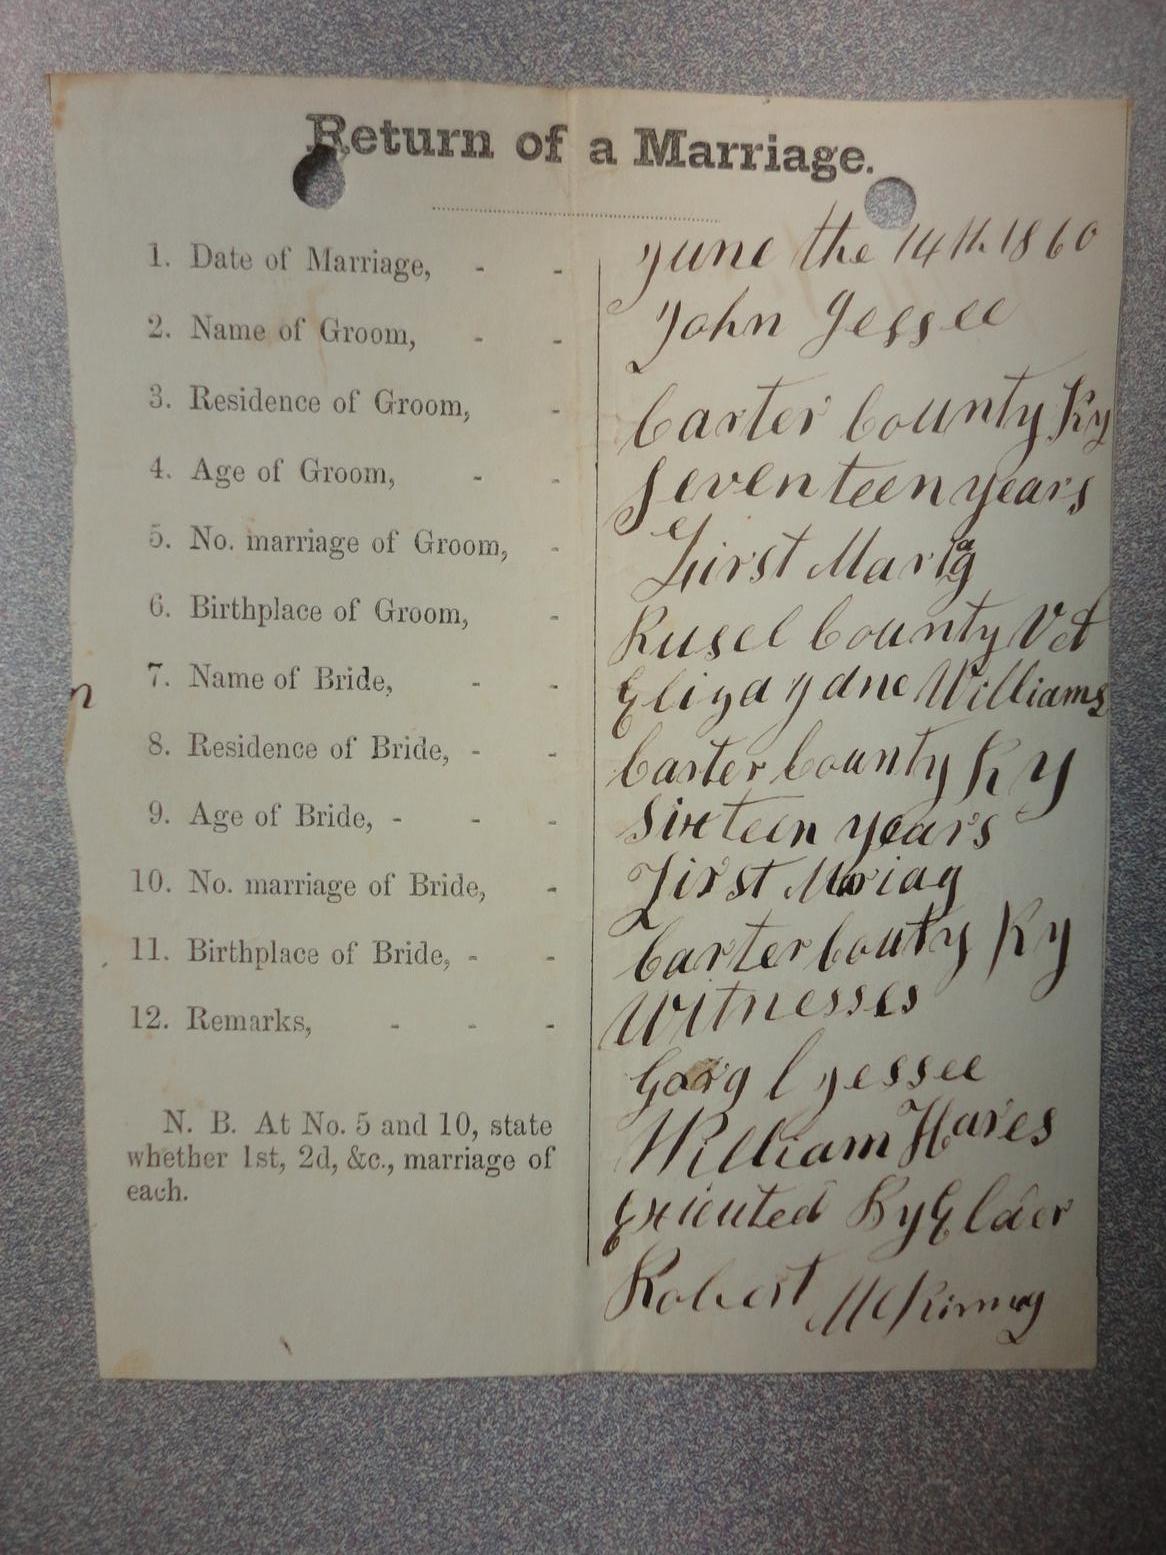 Return of a Marriage.
1. Date of Marriage, - - June the 14th 1860
2. Name of Groom, - - John Jessee
3. Residence of Groom, - Carter County Ky
4. Age of Groom, - - Seventeen years
5. No. marriage of Groom, - First Mariag
6. Birthplace of Groom, - Rusel County Va
7. Name of Bride, - - Eliza Jane Williams
8. Residence of Bride, - - Carter County Ky
9. Age of Bride, - - - Sixteen years
10. No. marriage of Bride, - First Mariag
11. Birthplace of Bride, - - Carter Couty Ky
12. Remarks, - - - Witnesses
Gorg l Jessee
N. B. At No. 5 and 10, state William Hares
whether 1st, 2d, &c., marriage of
each. Exicuted By Elder
Robert McKinny